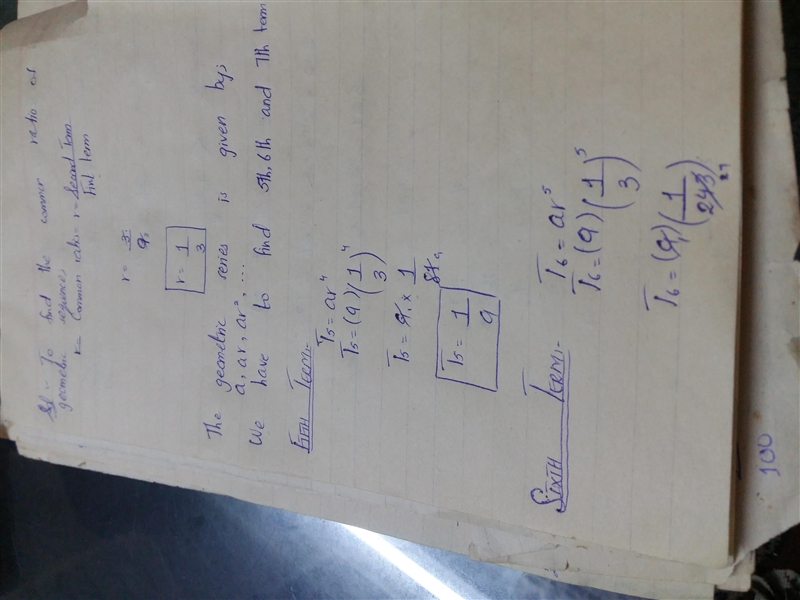 Sol:- To find the common ratio of
geometric sequences
Common ratio = r = Second Term
First term
r = 3
9
r = 1
3
The geometric series is given by:
a, ar, ar², ...
We have to find 5th, 6th and 7th term
FIFTH TERM:-
T5 = ar⁴
T5 = (9)(1/3)⁴
T5 = 9 × 1
81 9
T5 = 1
9
SIXTH TERM:-
T6 = ar⁵
T6 = (9)(1/3)⁵
T6 = (9)(1/243)
27
100